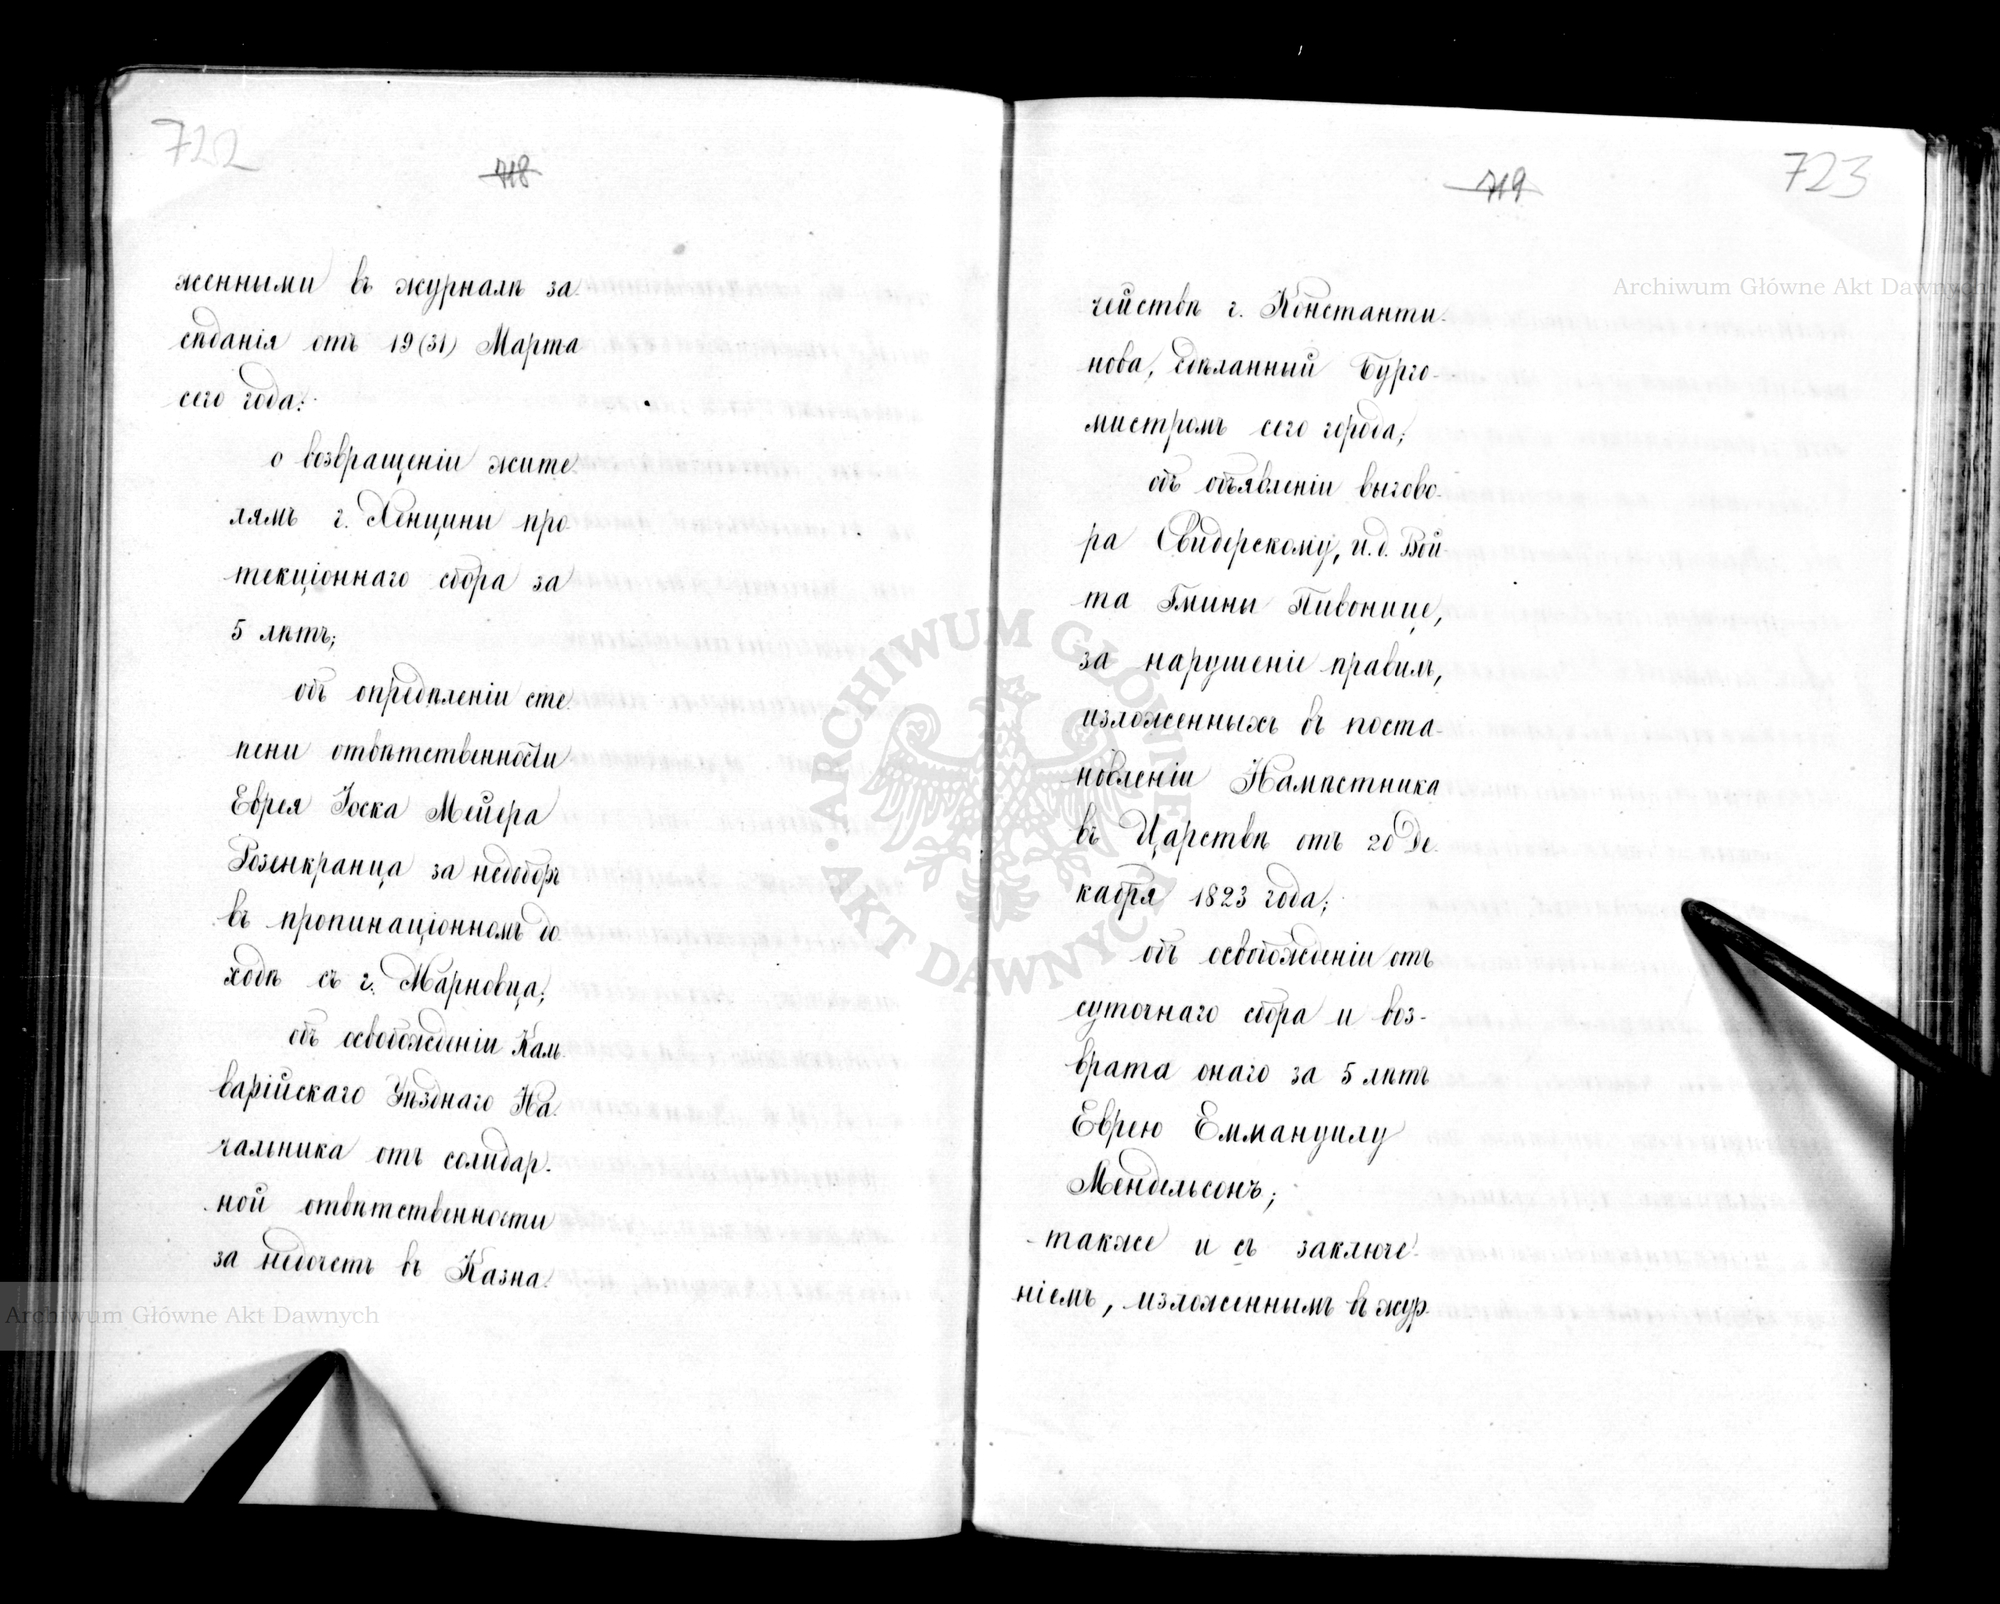 722
718
женными въ журналѣ за-
сѣданія отъ 19 (31) Марта
сего года:
о возвращеніи жите-
лямъ г. Хенцини про-
текціоннаго сбора за
5 лѣтъ;
объ опредѣленіи сте-
пени отвѣтственности
Еврея Іоска Мейера
Розенкранца за недоборъ
въ пропинаціонномъ до-
ходѣ съ г. Марновца;
объ освобожденіи Каль-
варійскаго Уѣзднаго На-
чальника отъ солидар-
ной отвѣтственности
за недочетъ въ Казна-
719
723
чействѣ г. Константи-
нова, сдѣланный Бурго-
мистромъ сего города;
объ объявленіи выгово-
ра Свидерскому, и.д. Вой-
та Гмины Пивонице,
за нарушеніе правилъ,
изложенныхъ въ поста-
новленіи Намѣстника
въ Царствѣ отъ 20 Де-
кабря 1823 года;
объ освобожденіи отъ
суточнаго сбора и воз-
врата онаго за 5 лѣтъ
Еврею Еммануилу
Мендельсонъ;
также и съ заключе-
ніемъ, изложеннымъ въ жур-
Archiwum Główne Akt Dawnych
Archiwum Główne Akt Dawnych
ARCHIWUM GŁÓWNE AKT DAWNYCH